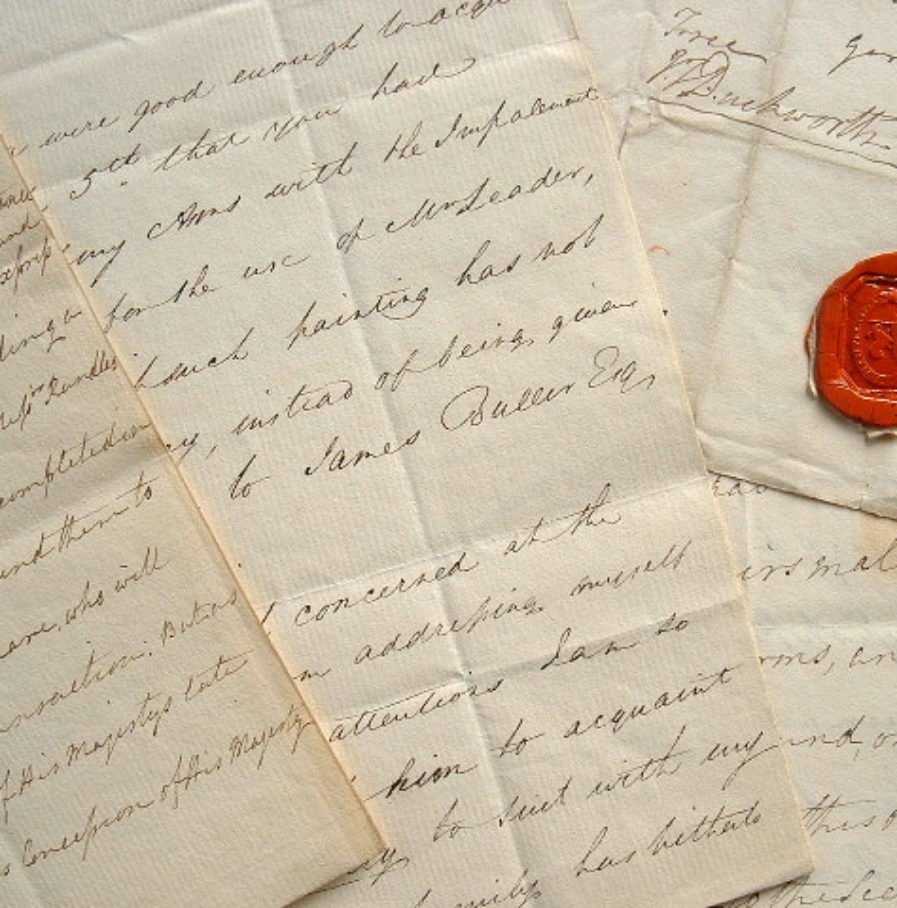 were good enough to acqu
5th that you had
my Arms with the Impalement
for the use of Mr Leader,
such painting has not
ry, instead of being given
to James Buller Esqr
concerned at the
m addressing myself
attentions I am so
him to acquaint
to suit with my
family has hitherto
and
ding a
Messrs Rundle
completed in
and them to
ame, who will
nsaction. But as
of His Majestys late
s Conception of His Majesty
Duckworth
irs mal
rms, an
and, o
this